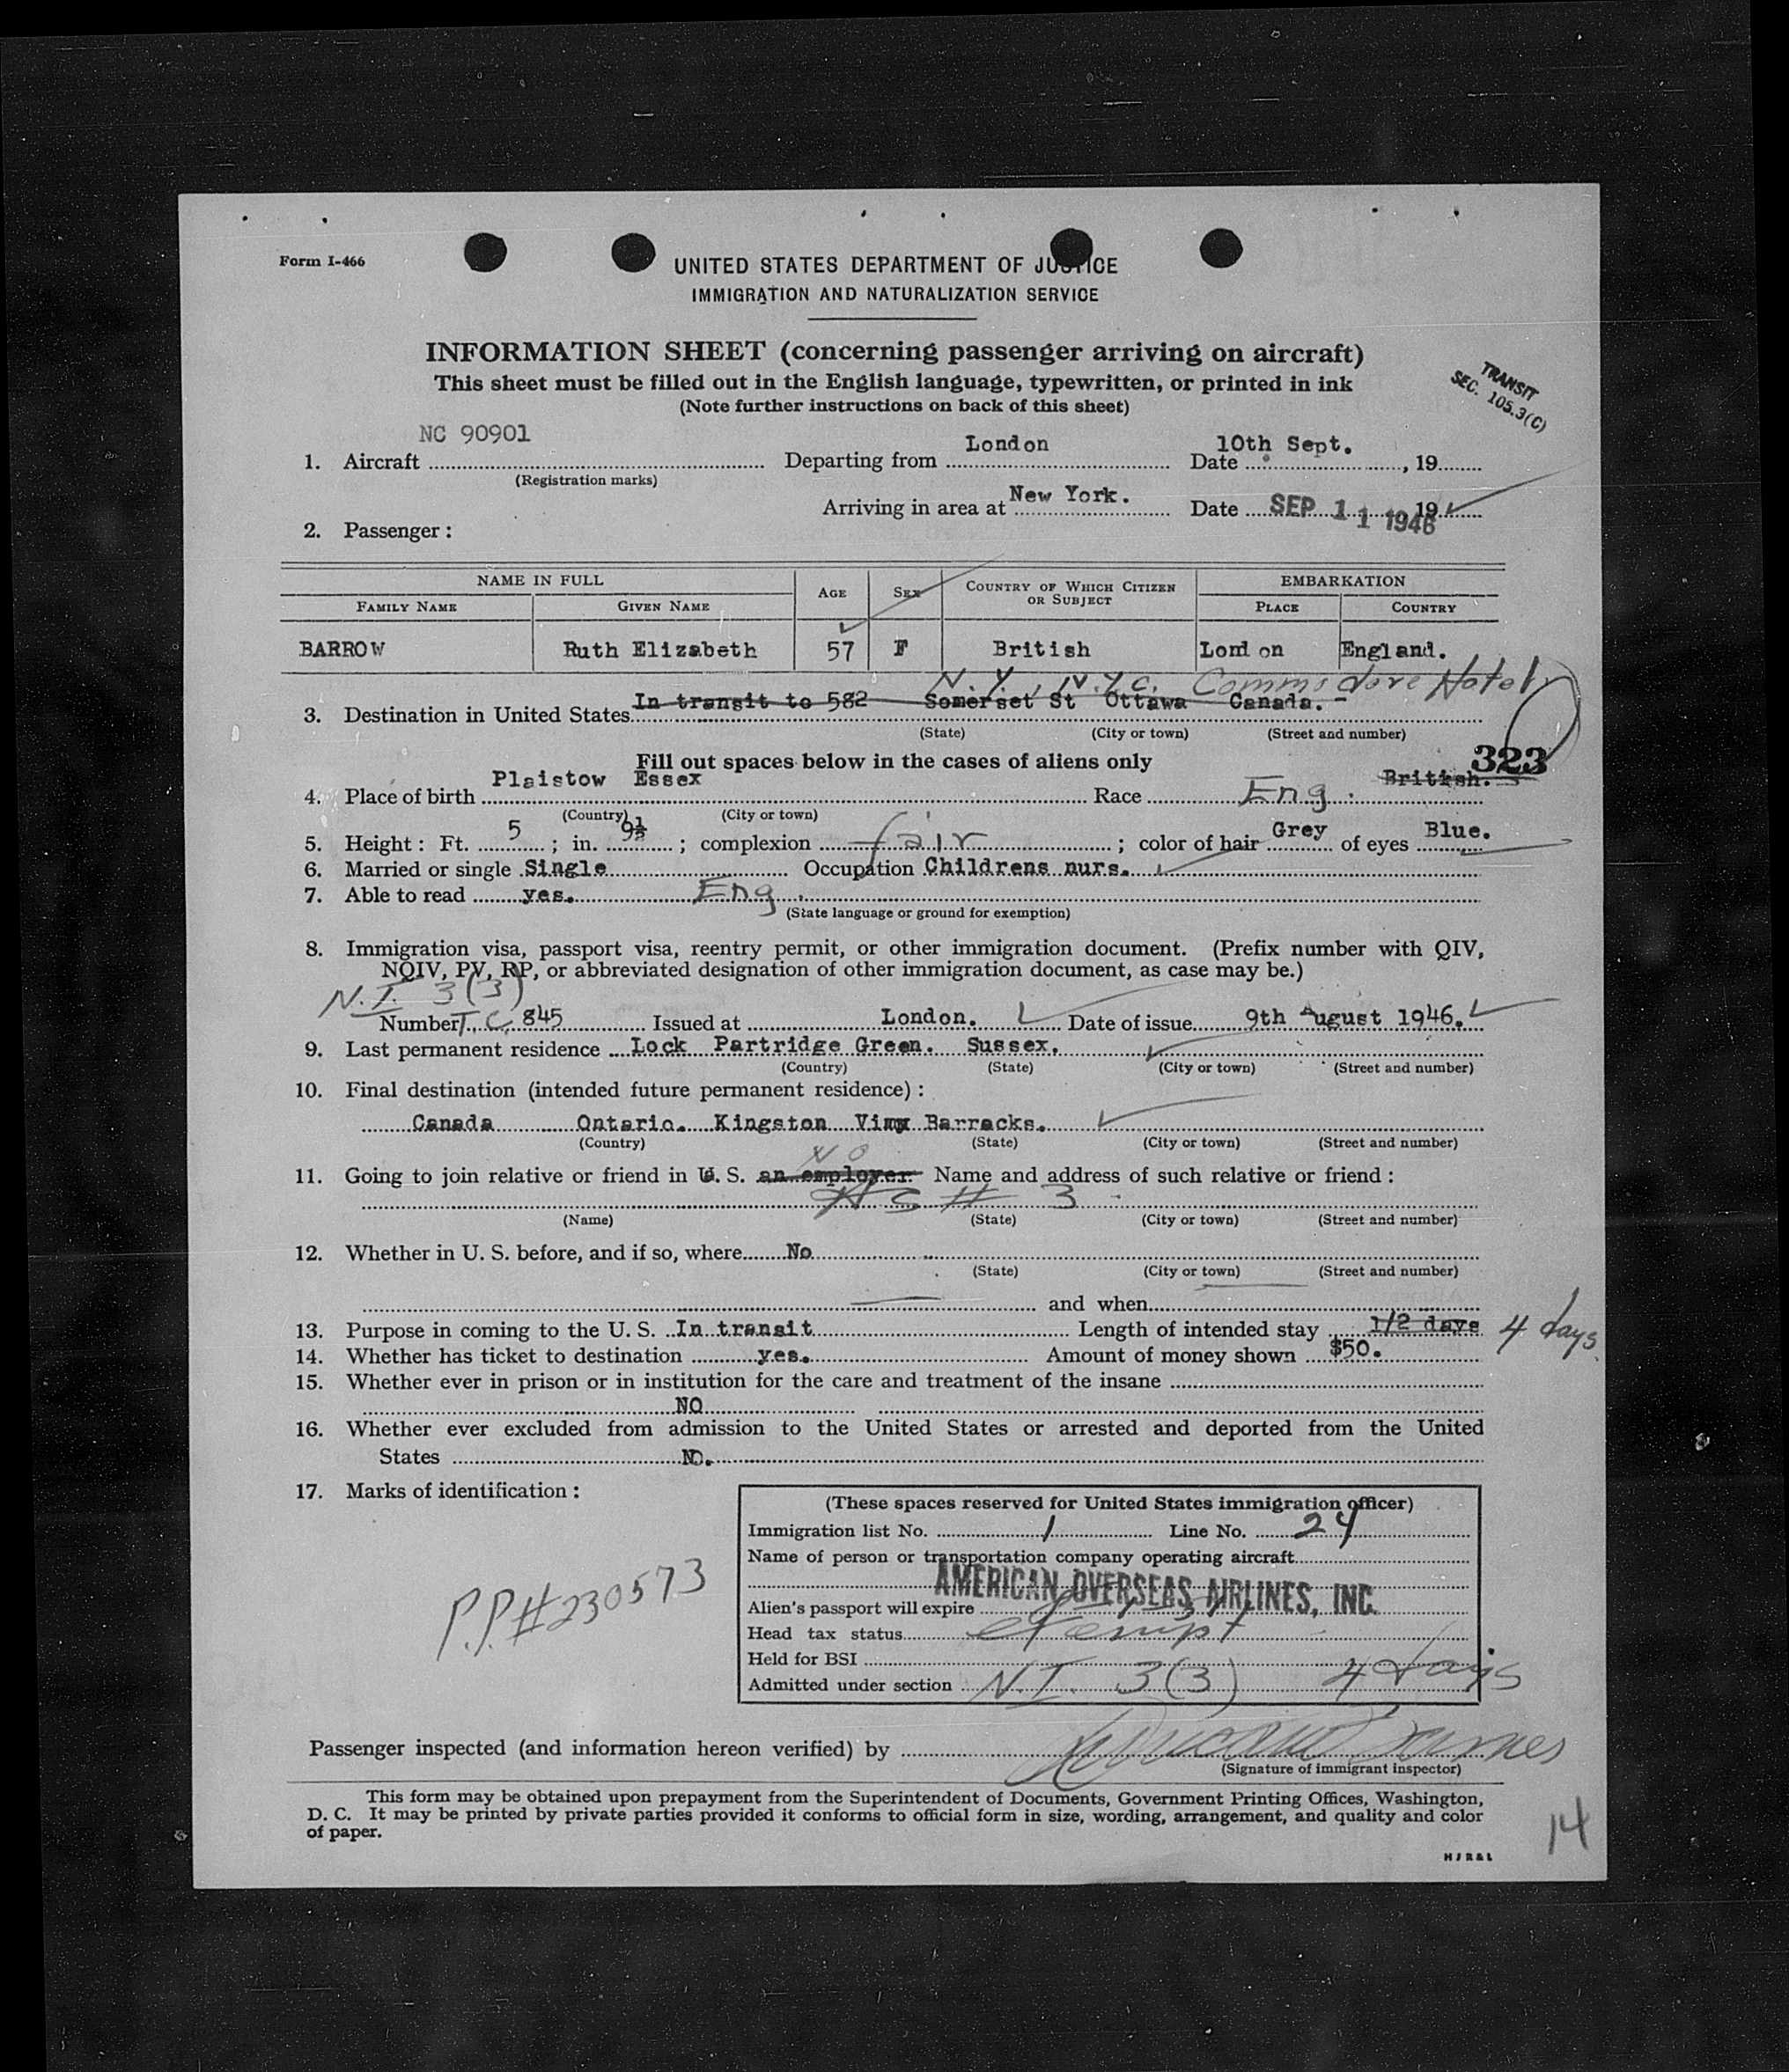 Form I-466
UNITED STATES DEPARTMENT OF JUSTICE
IMMIGRATION AND NATURALIZATION SERVICE
INFORMATION SHEET (concerning passenger arriving on aircraft)
This sheet must be filled out in the English language, typewritten, or printed in ink
(Note further instructions on back of this sheet)
TRANSIT
SEC. 105.3(C)
NC 90901 London 10th Sept.
1. Aircraft Departing from Date , 19
(Registration marks)
Arriving in area at New York. Date SEP 11 1946 19
2. Passenger:
NAME IN FULL AGE SEX COUNTRY OF WHICH CITIZEN OR SUBJECT EMBARKATION
FAMILY NAME GIVEN NAME PLACE COUNTRY
BARROW Ruth Elizabeth 57 F British London England.
N.Y., N.Y.C. Commodore Hotel
3. Destination in United States In transit to 582 Somerset St Ottawa Canada. -
(State) (City or town) (Street and number)
Fill out spaces below in the cases of aliens only
323
4. Place of birth Plaistow Essex Race Eng. British.
(Country) (City or town)
5. Height: Ft. 5 ; in. 9½ ; complexion fair ; color of hair Grey of eyes Blue.
6. Married or single Single Occupation Childrens nurs.
7. Able to read yes. Eng.
(State language or ground for exemption)
8. Immigration visa, passport visa, reentry permit, or other immigration document. (Prefix number with QIV,
NQIV, PV, RP, or abbreviated designation of other immigration document, as case may be.)
N.I. 3(3)
Number T.C. 845 Issued at London. Date of issue 9th August 1946.
9. Last permanent residence Lock Partridge Green. Sussex.
(Country) (State) (City or town) (Street and number)
10. Final destination (intended future permanent residence):
Canada Ontario. Kingston Vimy Barracks.
(Country) (State) (City or town) (Street and number)
NO
11. Going to join relative or friend in U. S. an employer Name and address of such relative or friend:
AS # 3
(Name) (State) (City or town) (Street and number)
12. Whether in U. S. before, and if so, where No
(State) (City or town) (Street and number)
and when
13. Purpose in coming to the U. S. In transit Length of intended stay 1/2 days 4 days
14. Whether has ticket to destination yes. Amount of money shown $50.
15. Whether ever in prison or in institution for the care and treatment of the insane
NO
16. Whether ever excluded from admission to the United States or arrested and deported from the United
States NO.
17. Marks of identification:
P.P.#230573
(These spaces reserved for United States immigration officer)
Immigration list No. 1 Line No. 24
Name of person or transportation company operating aircraft
AMERICAN OVERSEAS AIRLINES, INC.
Alien's passport will expire
Head tax status exempt
Held for BSI
Admitted under section N.I. 3(3) 4 days
Passenger inspected (and information hereon verified) by
(Signature of immigrant inspector)
This form may be obtained upon prepayment from the Superintendent of Documents, Government Printing Offices, Washington,
D. C. It may be printed by private parties provided it conforms to official form in size, wording, arrangement, and quality and color
of paper.
14
HJR&L